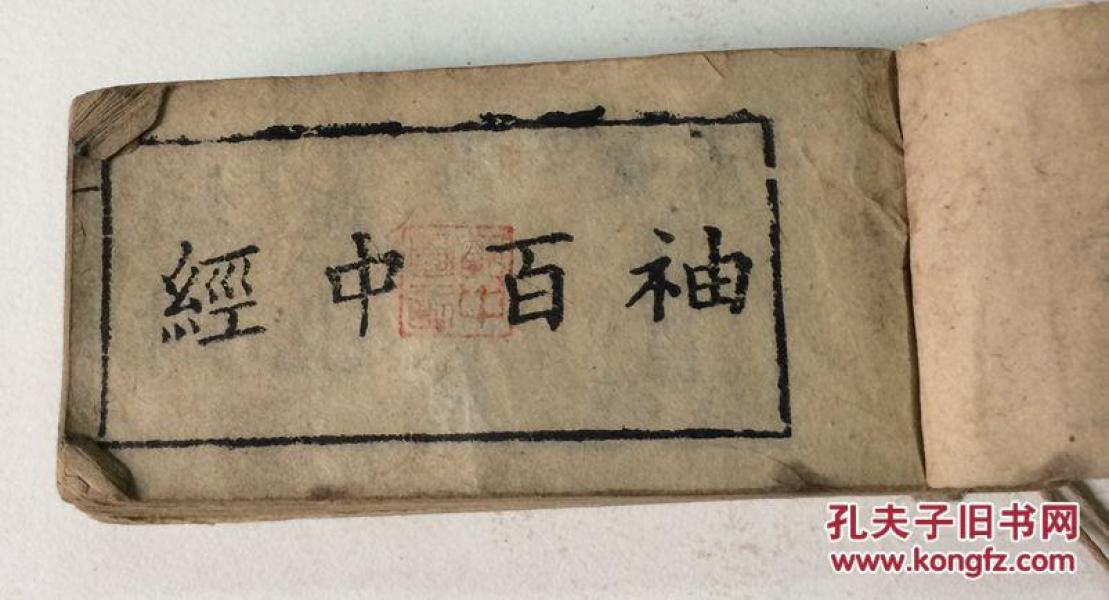 袖百中經
孔夫子旧书网
www.kongfz.com